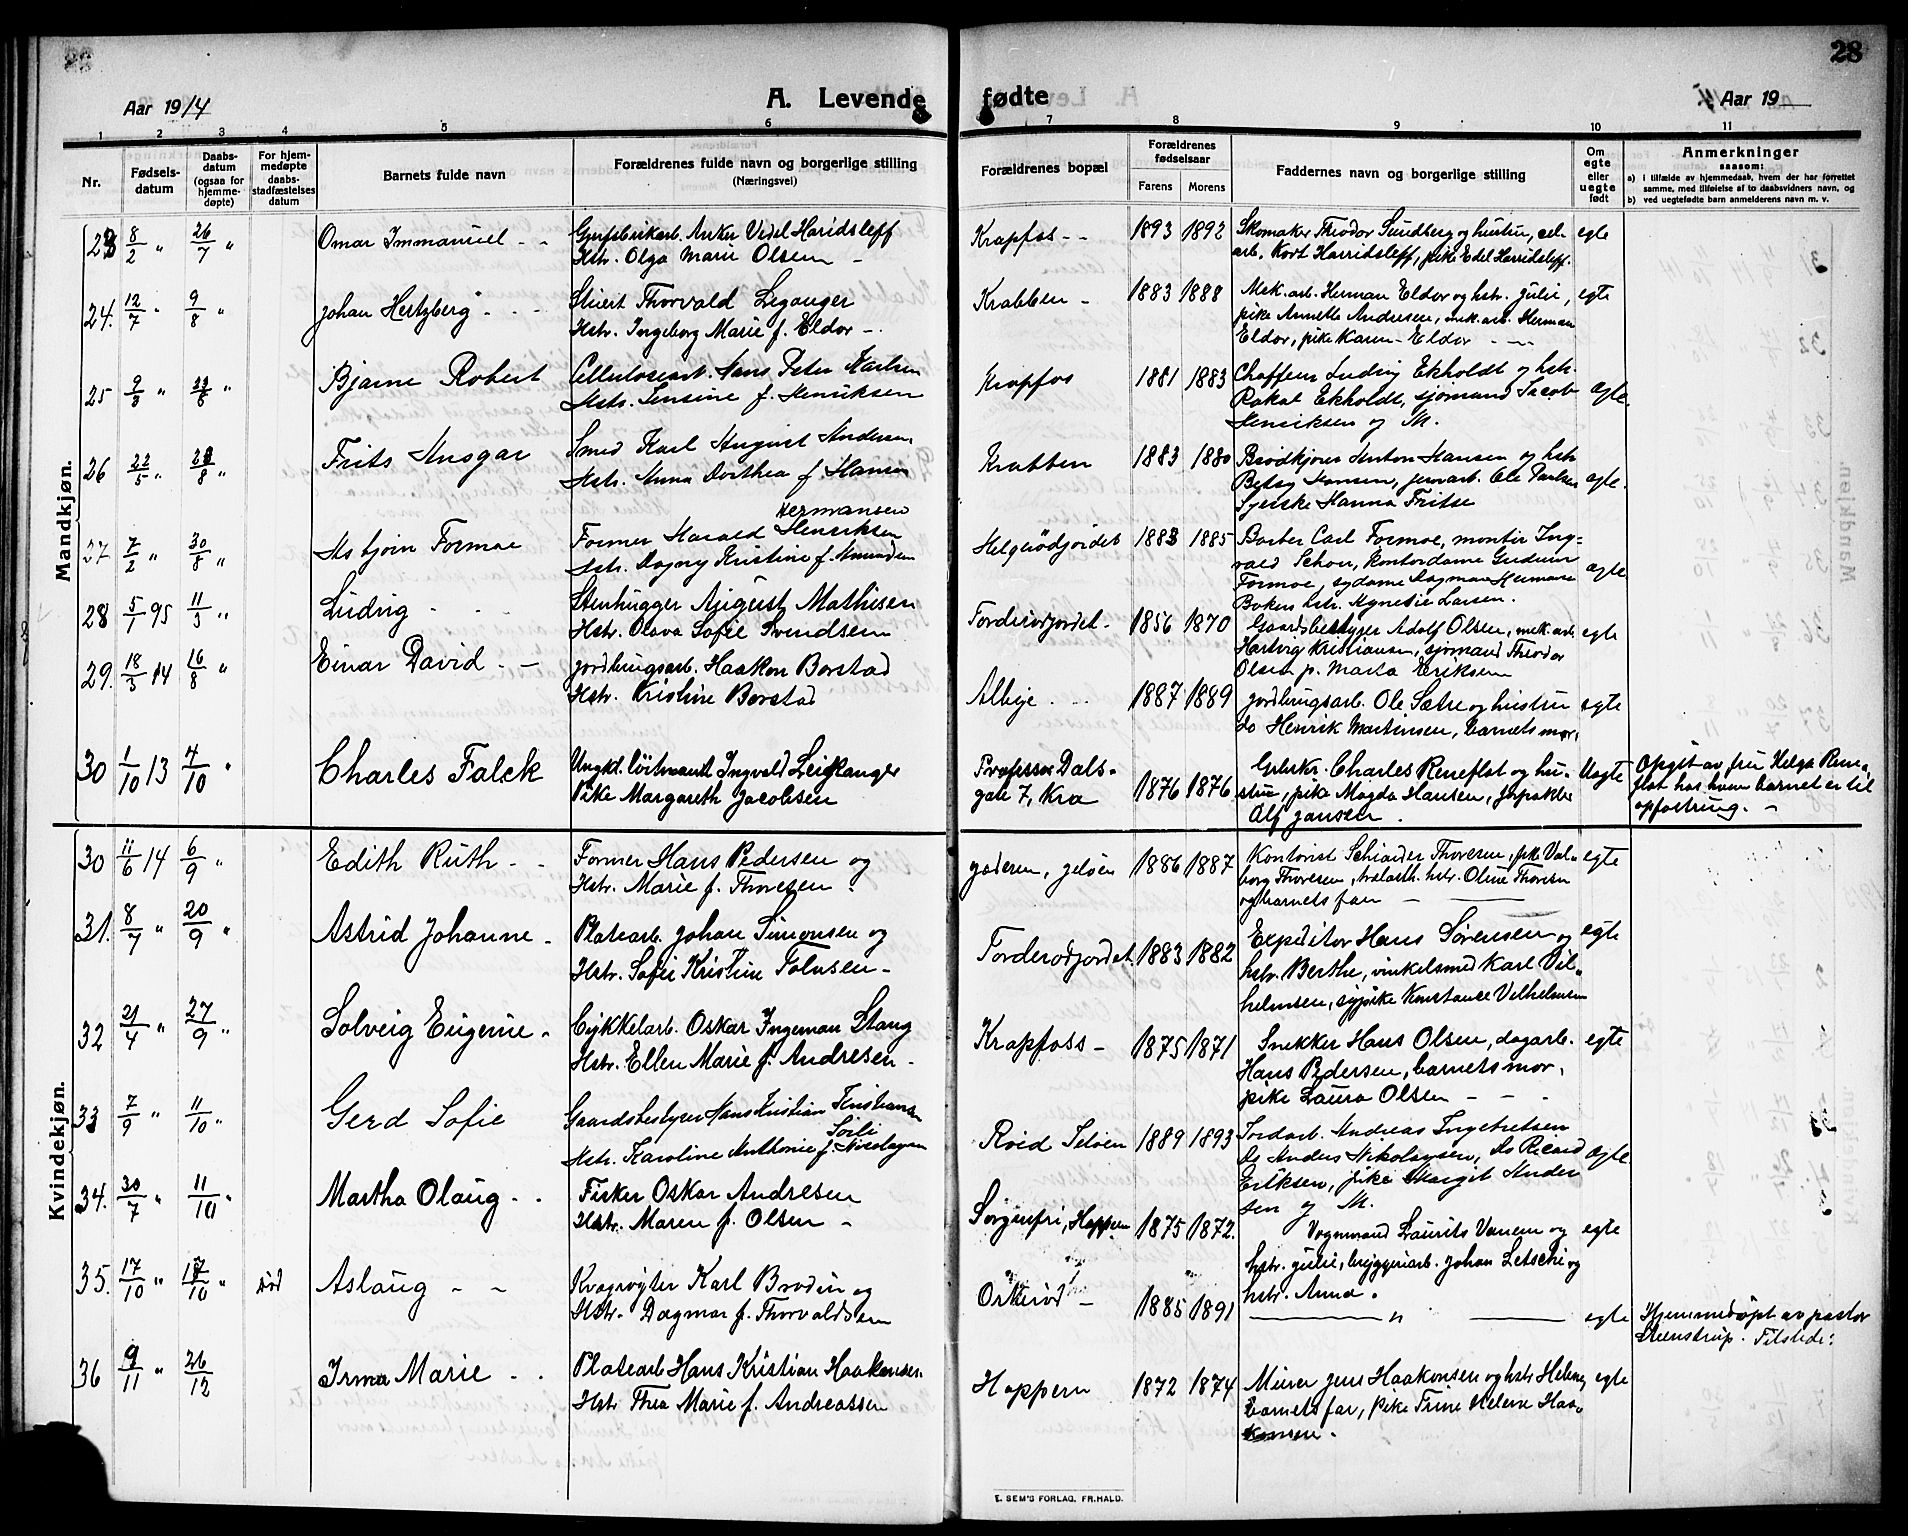 28
Aar 1914
A. Levende fødte
Aar 19
1 2 3 4 5 6 7 8 9 10 11
Nr.
Fødsels-datum
Daabs-datum (ogsaa for hjemme-døpte)
For hjem-medøpte daabs-stadfæstelses datum
Barnets fulde navn
Forældrenes fulde navn og borgerlige stilling
(Næringsvei)
Forældrenes bopæl
Forældrenes fødselsaar
Farens Morens
Faddernes navn og borgerlige stilling
Om egte eller uegte født
Anmerkninger
saasom:
a) i tilfælde av hjemmedaab, hvem der har forrettet samme, med tilføielse af to daabsvidners navn, og
b) ved uegtefødte barn anmelderens navn m. v.
Mandkjøn.
23 8/2 " 26/7 " Omar Immanuel - - Anker Vedel Haridsleff
Hstr. Olga Marie Olsen -
Krapfos - - 1893 1892 Skomaker Theodor Sundberg og hustru, cel.
arb. Kort Harridsleff, pike Edel Harridsleff.
egte
24. 12/7 " 9/8 " Johan Hertzberg - - - Stuert Thorvald Leganger
Hstr. Ingeborg Marie f. Eldor -.
Krabben - 1883 1888 Mek. arb. Herman Eldor og hstr. Julie,
pike Annette Andresen, mek. arb. Herman
Eldor, pike Karen Eldor - -
egte
25 9/3 " 23/8 " Bjarne Robert Cellulosearb. Hans Peter Karlsen
Hstr. Jensine f. Henriksen
Krapfos 1881 1883 Chaffeur Ludvig Ekholdt og hstr.
Rakal Ekholdt, sjömand Jacob
Henriksen og M.
egte.
26 22/5 " 23/8 " Frits Ansgar Smed Karl August Andersen
Hstr. Anna Dorthea f. Hansen
Krabben 1883 1880 Brödkjörer Anton Hansen og hstr.
Betsy Hansen, jernarb. Ole Paulsen
Syerske Hanna Fritse
egte.
27 7/2 " 30/8 " Asbjörn Formoe Hermansen
Former Harald Henriksen
Hstr. Dagny Kristine f. Amundsen
Helgerödjordet 1883 1885 Barber Carl Formoe, montör Ing-
vald Schou, kontordame Gudrun
Formoe, sydame Dagmar Hermansen
Bokers hstr. Agnetie Larsen.
egte
28 5/1 95 11/3 " Ludvig - - Stenhugger August Mathisen
Hstr. Olava Sofie Svendsen
Torderödjordet - 1856 1870 Gaardsbestyrer Adolf Olsen, mek. arb.
Hartvig Kristiansen, sjömand Theodor
Olsen p. Marta Eriksen
egte
29. 18/3 14 16/8 " Einar David - - Jordbrugsarb. Haakon Borstad
Hstr. Kristine Borstad
Alby - - - 1887 1889 Jordbrugsarb. Ole Sætre og hustru
do Henrik Martinsen, barnets mor.
egte
30 1/10 13 4/10 " Charles Falck Ungkl. löitnant Ingvald Leikanger
Pike Margareth Jacobsen
Professor Dals-
gate 7, Kra 1876 1876 Charles Reneflot og hu-
stru, pike Magda Hansen,
Alf Jansen.
Uegte
Opgit av fru Helga Rene-
flot hos hvem barnet er til
opfostring. -
Kvindekjøn.
30 11/6 14 6/9 " Edith Ruth - - Former Hans Pedersen og
Hstr. Marie f. Thoresen
Jeløen 1886 1887 Kontorist Schiander Thoresen, pike Val-
borg Thoresen, hstr. Oline Thoresen
og barnets far -
egte
31. 8/7 " 20/9 " Astrid Johanne - Platearb. Johan Simonsen og
Hstr. Sofie Kristine Tolnsen -
Torderødjordet 1883 1882 Expeditör Hans Sørensen og
hstr. Berthe, vinkelsmed Karl Vil-
helmsen, sypike Konstance Vilhelmsen
egte
32 21/4 " 27/9 " Solveig Eugenie - Cykkelarb. Oskar Ingeman Stang
Hstr. Ellen Marie f. Andresen -
Krapfoss - 1875 1871 Snekker Hans Olsen, dagarb.
Hans Pedersen, barnets mor,
pike Laura Olsen - - -
egte
33 7/9 " 11/10 " Gerd Sofie Gaardsbestyrer Hans Kristian Kristiansen
Soili
Hstr. Karoline Anthonie f. Nicolaysen
Röid Jeløen 1889 1893 Jordarb. Andreas Ingebretsen
Do Anders Nikolaysen, Do Ricard
Eriksen, pike Margit Ander
sen og M.
egte
34. 30/7 " 11/10 " Martha Olaug - - Fisker Oskar Andresen
Hstr. Maren f. Olsen -
Sorgenfri, Hoppern 1875 1872. Vognmand Laurits Vanem og
hstr. Julie, bryggeriarb. Johan Letschi og
hstr. Anna.
egte
35. 17/10 " 17/10 " död Aslaug - - Kvægrøgter Karl Brodin og
Hstr. Dagmar f. Thorvaldsen
Orkeröd - 1885 1891 "
egte
Hjemmedøpt av pastor
Steenstrup. Tilstede:
36 9/11 " 26/12 Irma Marie - - Platearb Hans Kristian Haakonsen
Hstr Thea Marie f. Andreassen
Hoppern 1872 1874 Murer Jens Haakonsen og hstr Helene,
barnets far, pike Trine Helene Haa-
konsen.
egte
E. SEM'S FORLAG. FR.HALD.